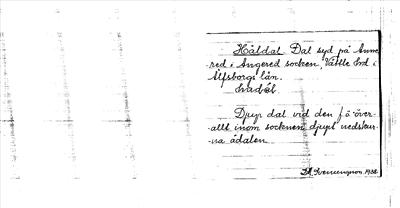 Håldal Dal syd på Anne-
red i Angered socken, Vättle hd i
Älfsborgs län.
Djup dal vid den f ö över-
allt inom socknen djupt nedskur-
na ådalen.
1932